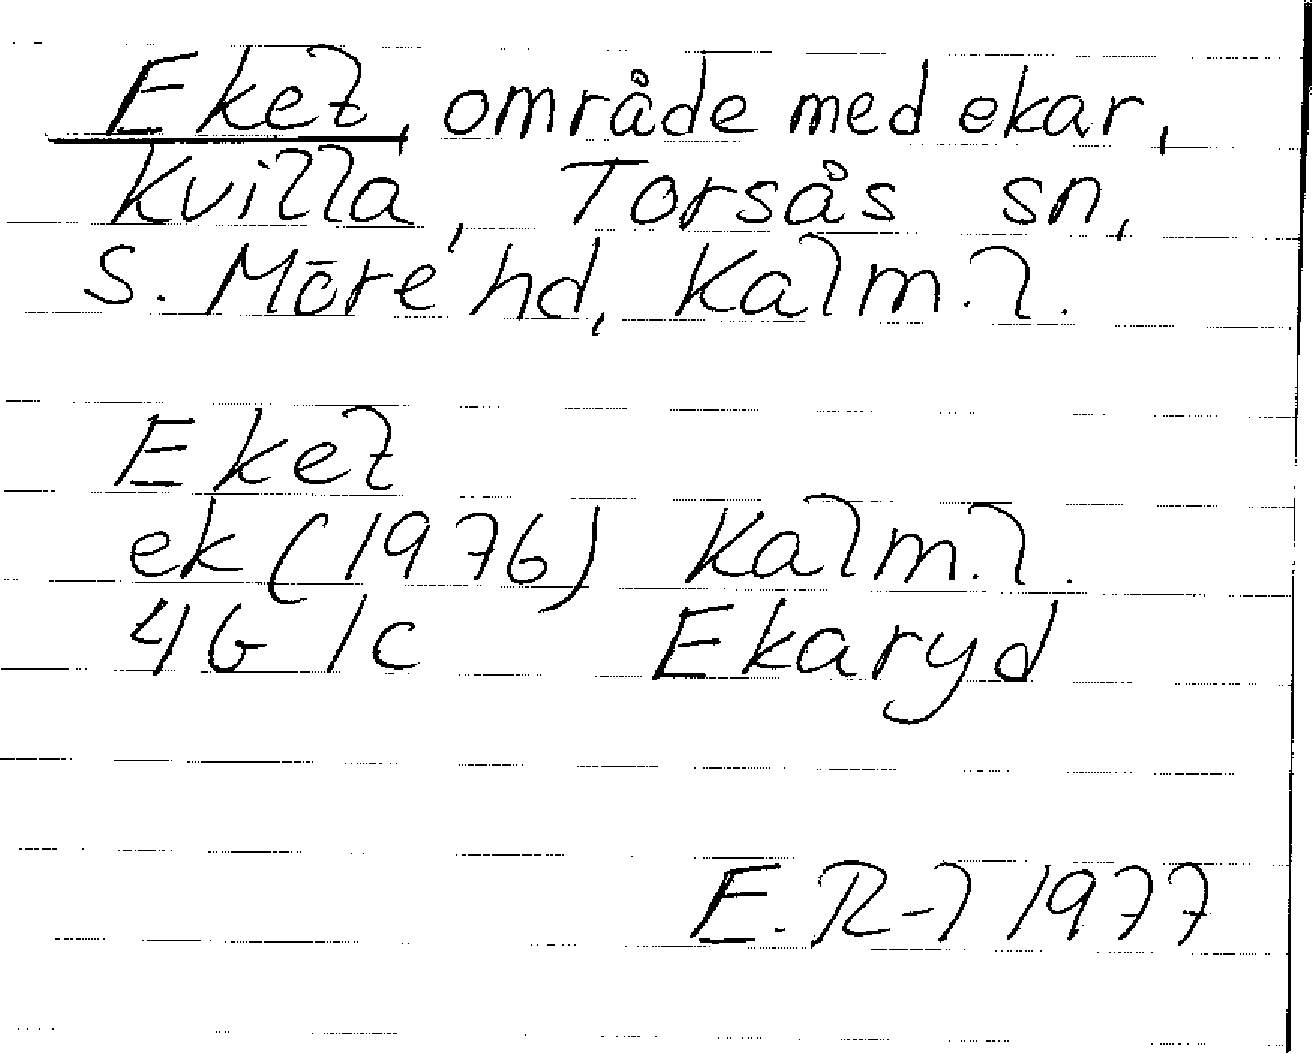 Eket, område med ekar,
Kvilla, Torsås sn,
S. Möre hd, Kalm. l.
Eket
ek (1976) Kalm. l.
4G 1c Ekaryd
E. R-l 1977